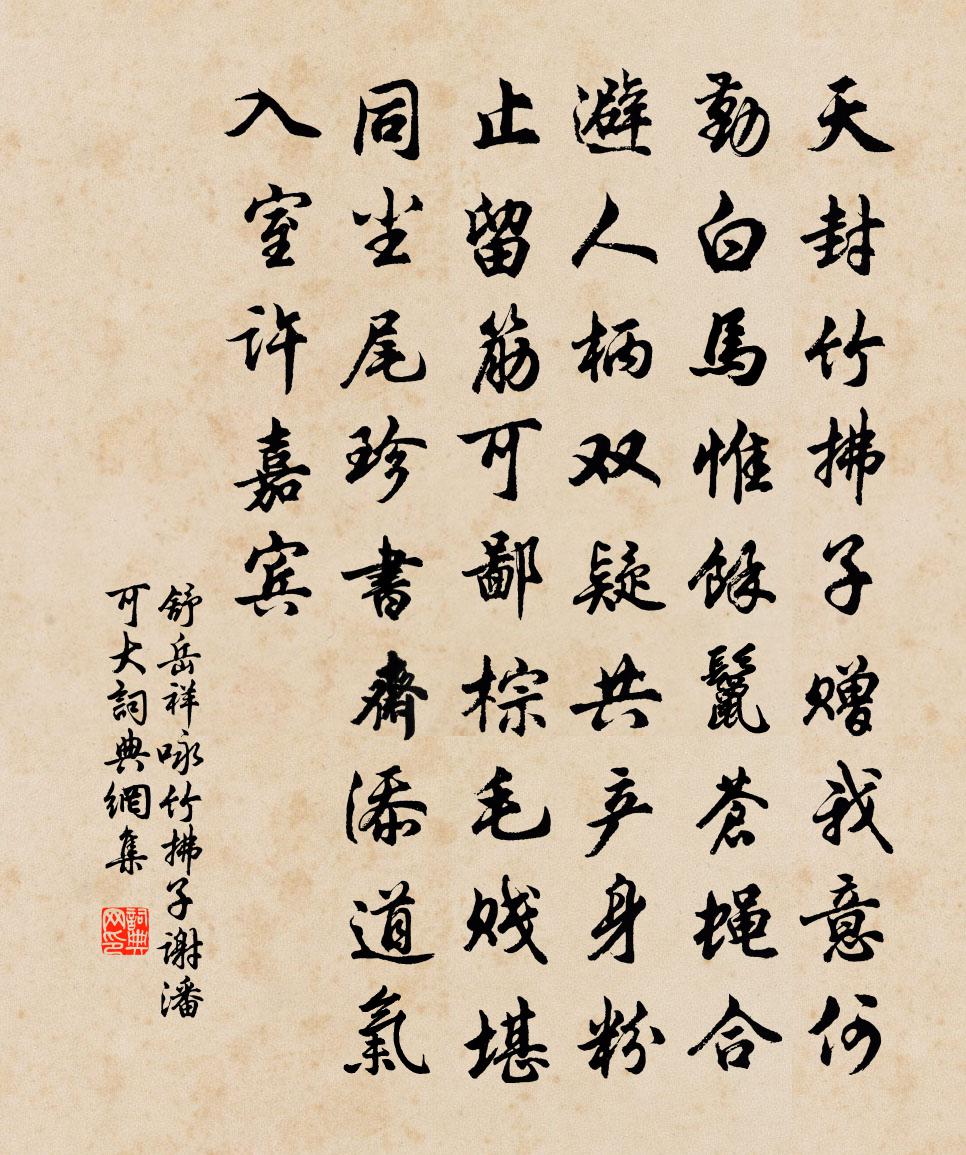 天封竹拂子赠我意何
勤白馬惟馀鬣蒼蝇合
避人柄双疑共产身粉
止留筋可鄙棕毛贱堪
同尘尾珍書齋添道氣
入室许嘉宾
舒岳祥咏竹拂子谢潘
可大詞典網集
詞典网印